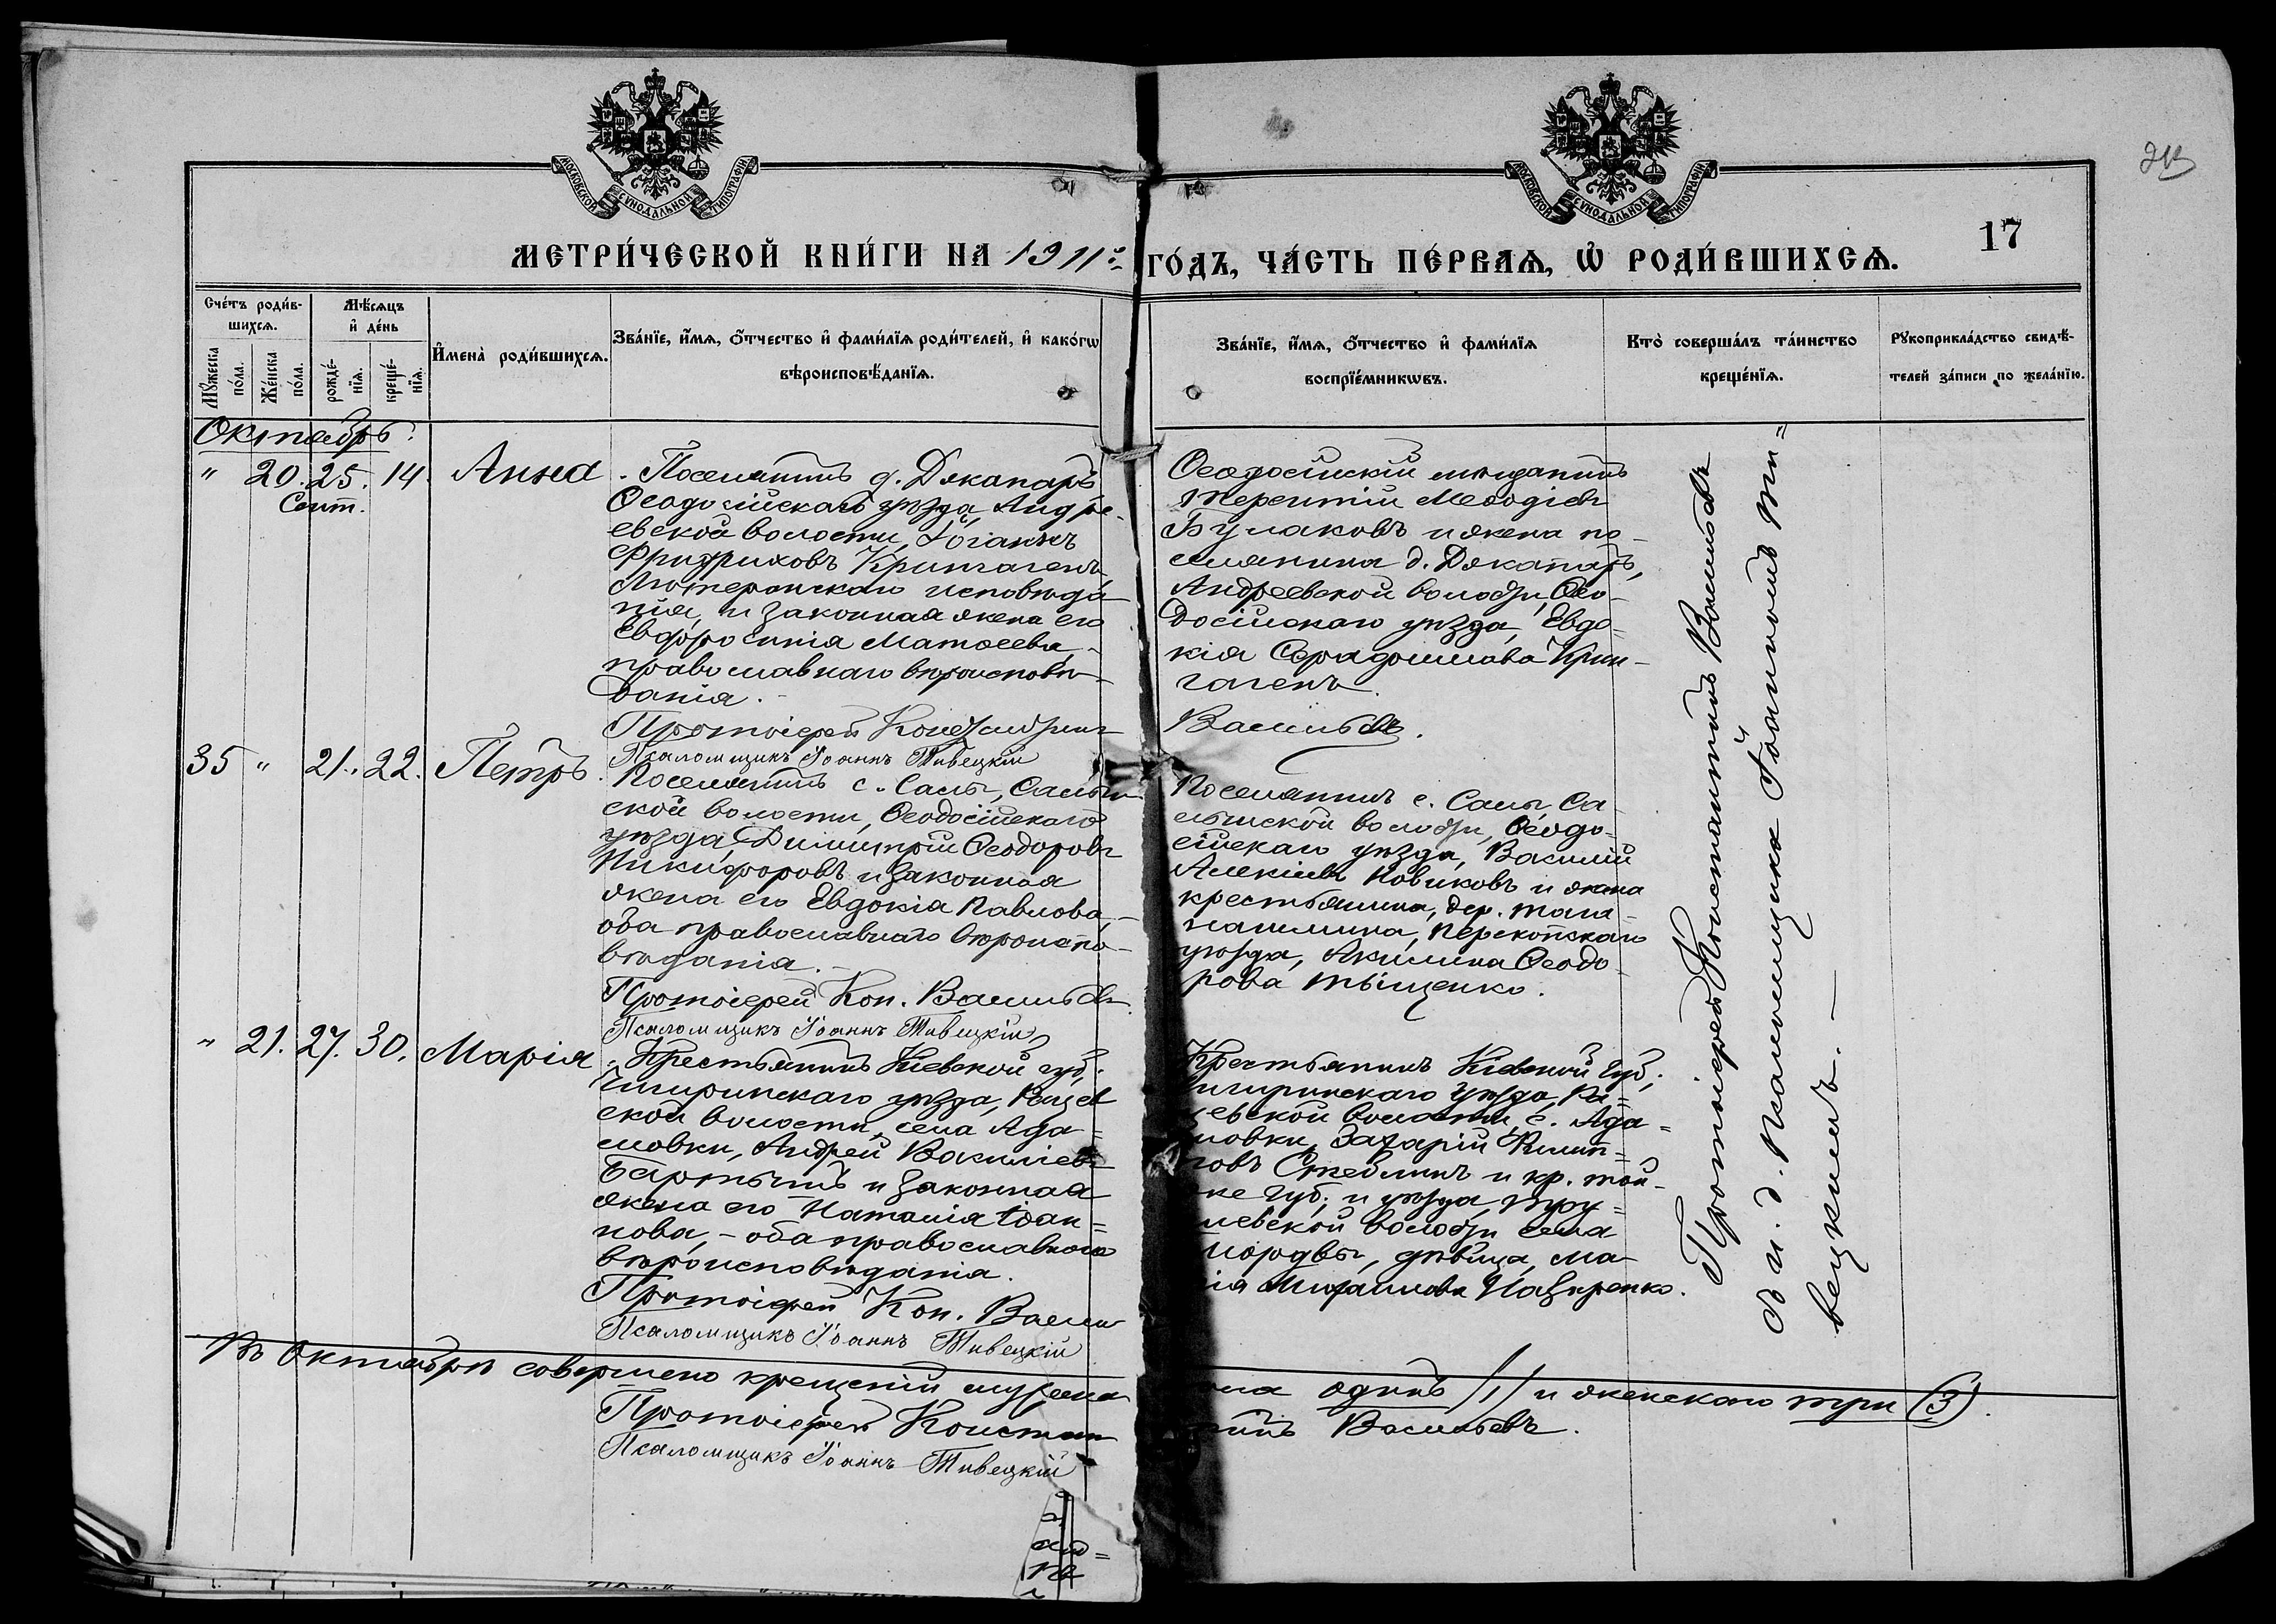 МОСКОВСКОЙ СѴНОДАЛЬНОЙ ТИПОГРАФІИ
МОСКОВСКОЙ СѴНОДАЛЬНОЙ ТИПОГРАФІИ
17
МЕТРИ́ЧЕСКОЙ КНИ́ГИ НА 1911й ГО́ДЪ, ЧА́СТЬ ПЕ́РВАѦ, Ѡ҆ РОДИ́ВШИХСѦ.
Сче́тъ роди́в-
шихсѧ.
Мꙋжеска
по́ла.
Же́нска
по́ла.
Мѣ́сѧцъ
и҆ де́нь
рожде́-
нїѧ.
креще́-
нїѧ.
И҆мена̀ роди́вшихсѧ.
Зва́нїе, и҆́мѧ, ѻ҆́тчество и҆ фами́лїѧ роди́телей, и҆ како́гѡ
вѣроисповѣ́данїѧ.
Зва́нїе, и҆́мѧ, ѻ҆́тчество и҆ фами́лїѧ
воспрїе́мникѡвъ.
Кто̀ соверша́лъ та́инство
креще́нїѧ.
Рꙋкоприкла́дство свидѣ́-
телей за́писи по жела́нїю.
Октябрь.
" 20. 25. 14. Анна
Сент.
Поселянинъ д. Джапаръ
Ѳеодосійскаго уѣзда, Андре-
евской волости, Іоганнъ
Фридриховъ
Лютеранскаго исповѣда-
нія, и законная жена его
Евфросинія Матѳеева,
православнаго вѣроисповѣ-
данія.
Протоіерей Константинъ Васильевъ.
Псаломщикъ Іоаннъ Тивецкій
Ѳеодосійскій мѣщанинъ
Терентій Меѳодіевъ
Булаковъ и жена по-
селянина д. Джапаръ,
Андреевской волости, Ѳео-
досійскаго уѣзда, Евдо-
кія
35 " 21. 22. Петръ
Поселянинъ с. Салы, Салын-
ской волости, Ѳеодосійскаго
уѣзда, Димитрій Ѳеодоровъ
Никифоровъ и законная
жена его Евдокія Павлова,
оба православнаго вѣроиспо-
вѣданія.
Протоіерей Кон. Васильевъ.
Псаломщикъ Іоаннъ Тивецкій
Поселянинъ с. Салы, Са-
лынской волости, Ѳеодо-
сійскаго уѣзда, Василій
Алексіевъ Новиковъ и жена
крестьянина, дер.
Перекопскаго
уѣзда, Акилина Ѳеодо-
рова Тыщенко.
" 21. 27. 30. Марія
Крестьянинъ Кіевской губ.,
Чигиринскаго уѣзда, Рацев-
ской волости, села Ада-
мовки, Андрей Василіевъ
и законная
жена его Наталія Іоан-
нова, - оба православнаго
вѣроисповѣданія.
Протоіерей Кон. Васил
Псаломщикъ Іоаннъ Тивецкій
Крестьянинъ Кіевской губ.,
Чигиринскаго уѣзда, Ра-
цевской волости, с. Ада-
мовки, Захарій Филип-
повъ и кр. той-
же губ. и уѣзда, Тру-
шевской волости села
Мордвы, дѣвица, Ма-
рія Михаилова Назаренко.
Протоіерей Константинъ Васильевъ
съ и. д. псаломщика Іоанномъ Ти-
вецкимъ. —
Въ Октябрѣ совершено крещеній мужска
пола одинъ /1/ и женскаго три (3).
Протоіерей Константинъ Васильевъ.
Псаломщикъ Іоаннъ Тивецкій